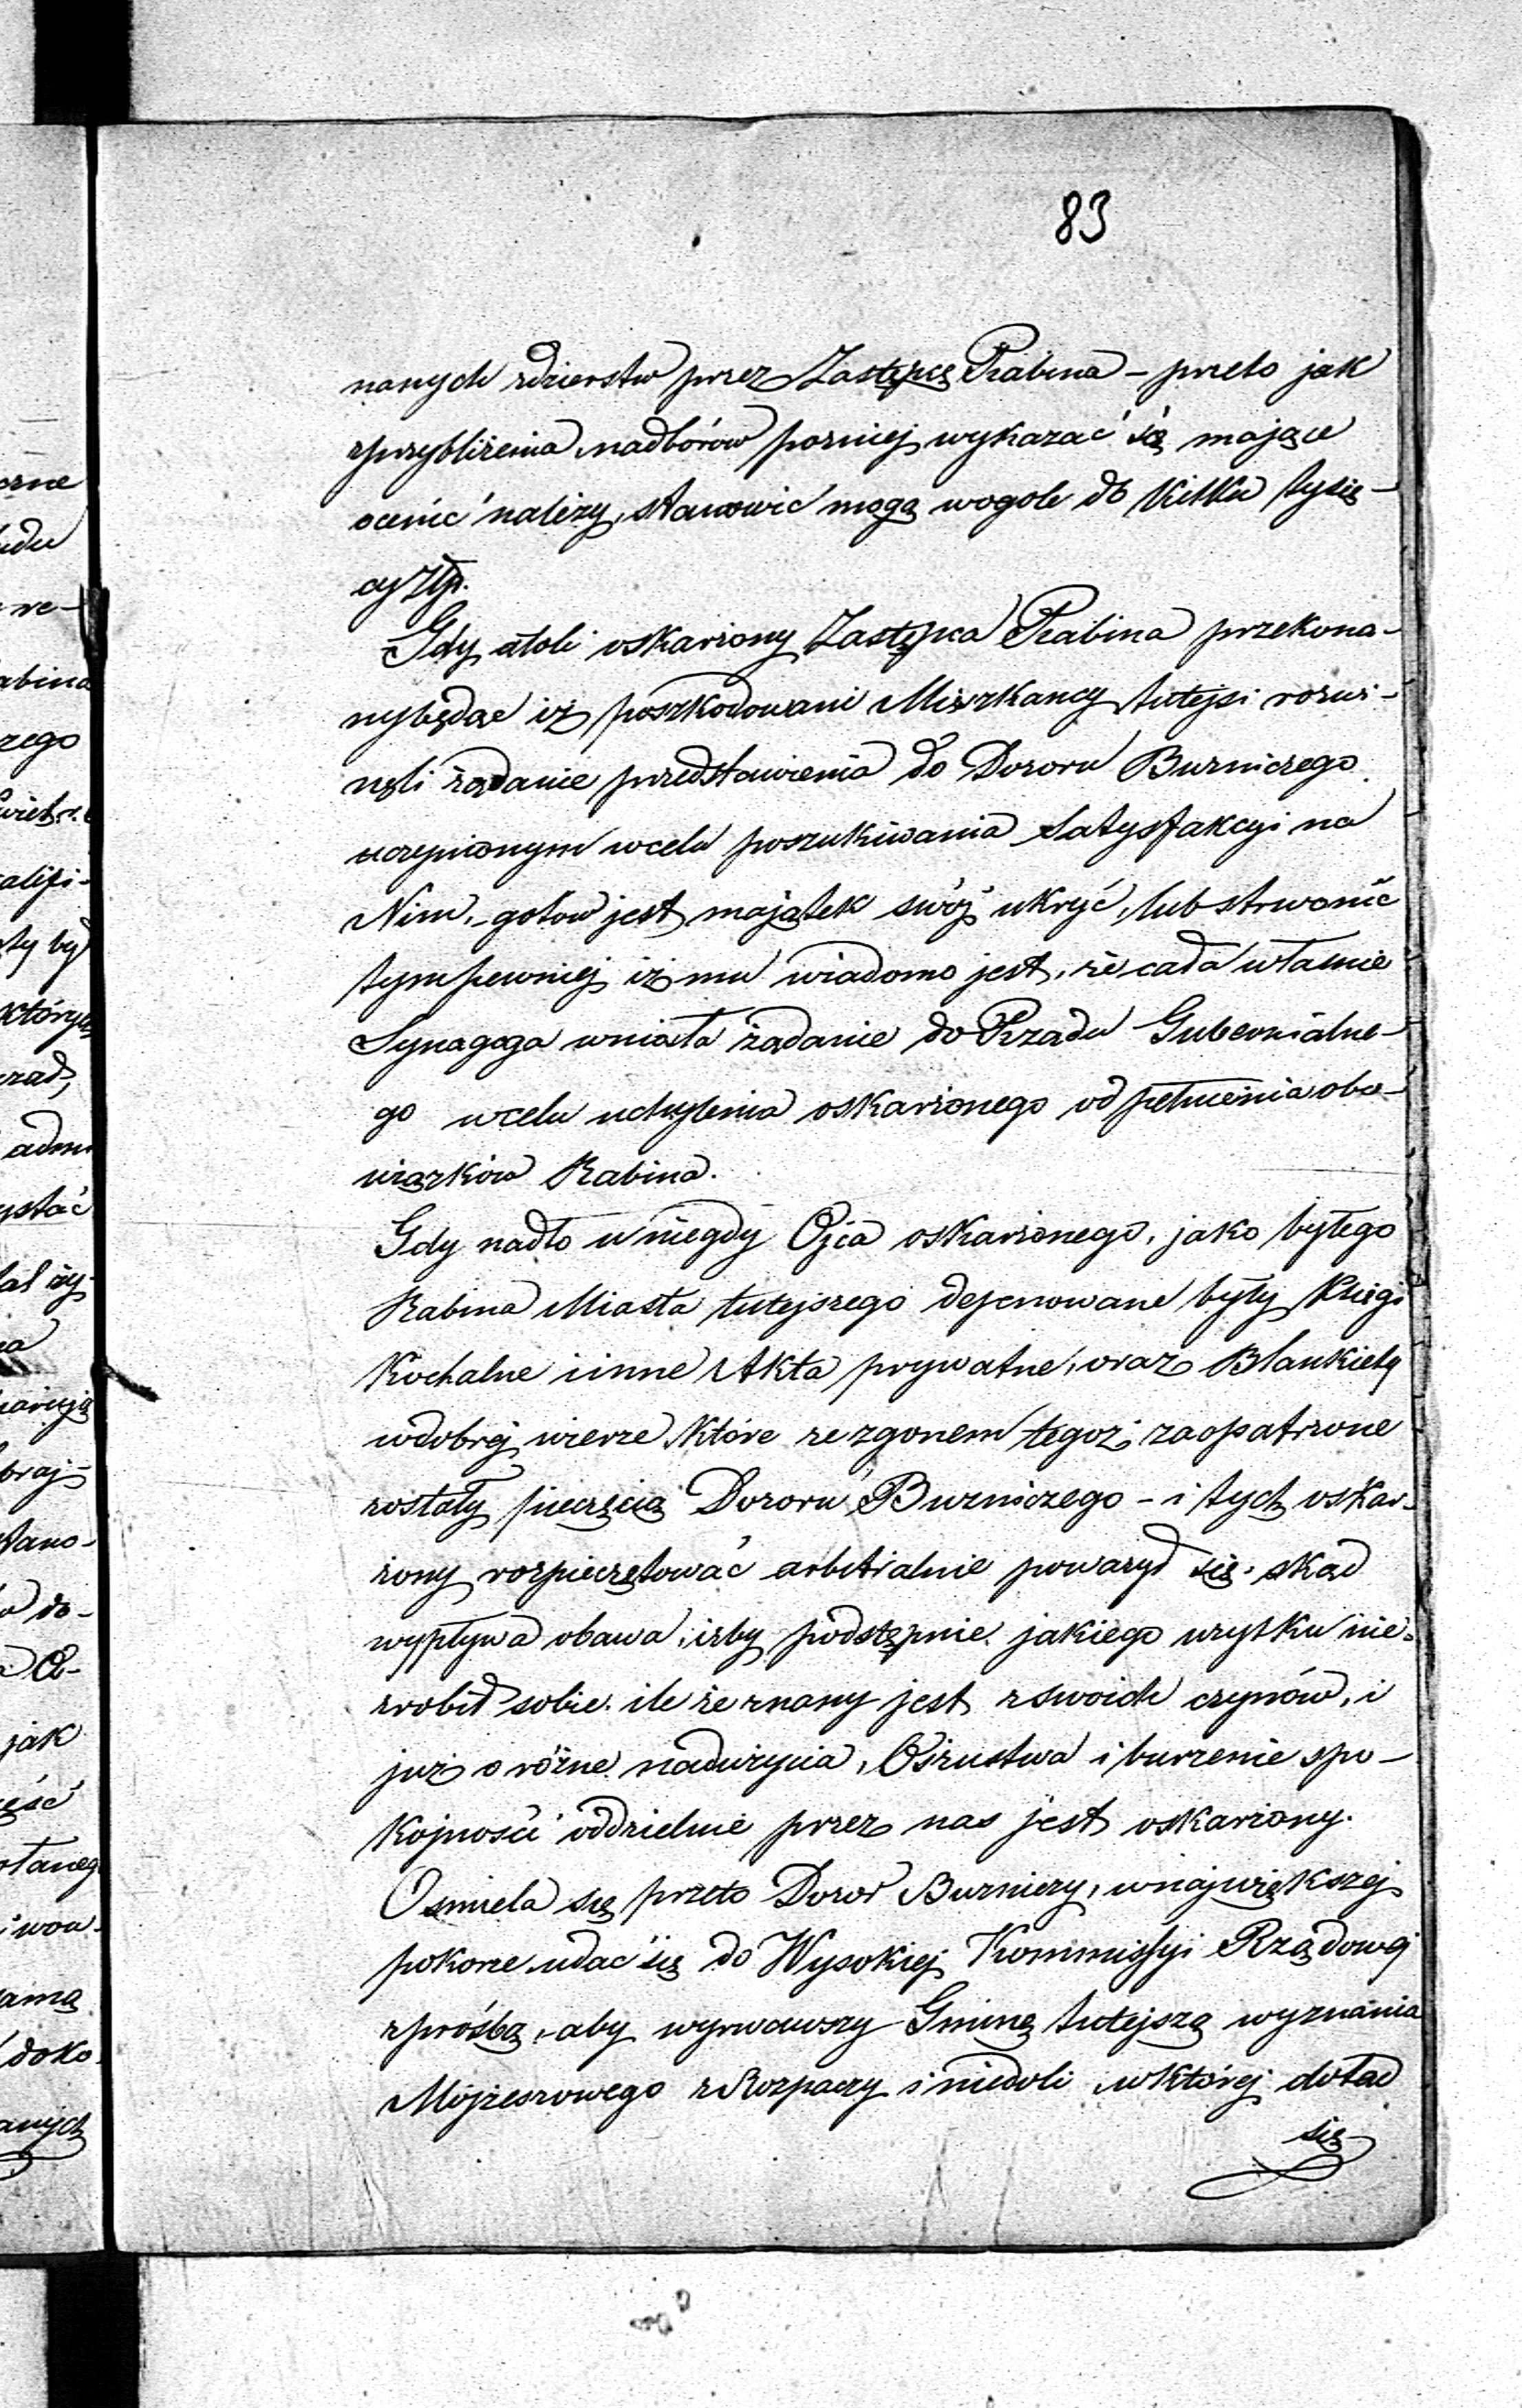 83
nanych zdzierstw przez Zastępcę Rabina – przeto jak
zprzybliżenia nadborów pozniej wykazać się mające
ocenić należy, stanowić mogą wogole do Kilku tysię-
cy Złp.
Gdy atoli oskarżony Zastępca Rabina przekona-
nybędąc iż poszkodowani Mieszkancy tutejsi rozwi-
nęli żądanie przedstawienia do Dozoru Bużniczego
uczynionym wcelu poszukiwania Satysfakcyi na
Nim, gotow jest majątek swój ukryć, lub strwonić
tympewniej iż mu wiadomo jest, że cała własnie
Synagoga wniosła żądanie do Rządu Gubernialne-
go wcelu uchylenia oskarżonego od pełnienia obo-
wiązków Rabina.
Gdy nadto u niegdy Ojca oskarżonego, jako byłego
Rabina Miasta tutejszego deponowane były Księgi
Kochalne i inne Akta prywatne, oraz Blankiety
wdobrej wierze Które ze zgonem tegoż zaopatrzone
zostały pieczęcią Dozoru Bużniczego – i tych oskar-
żony rozpieczętować arbitralnie poważył się. skąd
wypływa obawa, iżby podstępnie jakiego użytku nie-
zrobił sobie. ile że znany jest zswoich czynów, i
już o różne nadużycia, Oszustwa i burzenie spo-
Kojności oddzielnie przez nas jest oskarżony.
Osmiela się przeto Dozór Bużniczy, wnajwiększej
pokorze udać się do Wysokiej Kommissyi Rządowej
zprośbą, aby wyrwawszy Gminę tutejszą wyznania
Mojżeszowego z Rozpaczy i niedoli wktórej dotąd
się
erne
udu
re-
abina
zego
alifi-
ty był
których
rząd,
adm
ystać
na
braj-
stano-
do-
jak
ęść
otaneg
doko
anych